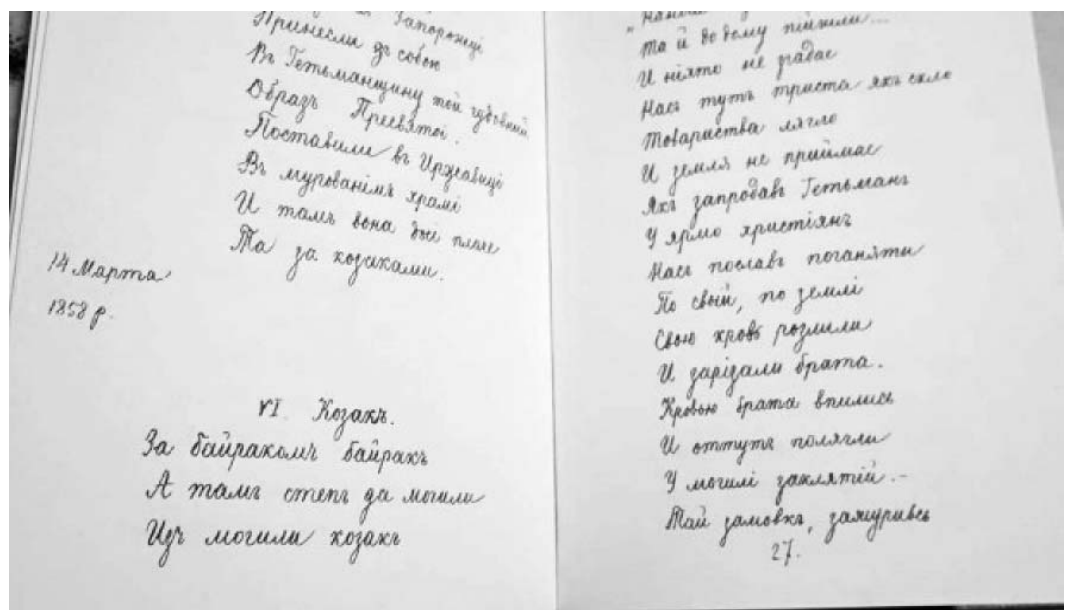 Запорожці
Принесли зъ собою
Въ Гетьманщину той чудовний
Образъ Пресвятоі.
Поставили въ Иржавиці
Въ мурованімъ храмі
И тамъ вона досі плаче
Та за козаками.
14 Марта
1858 р.
VI. Козакъ.
За байракомъ байракъ
А тамъ степъ да могили
Изъ могили козакъ
та й до дому пійшли...
И ніхто не згадає
Насъ тутъ триста якъ скло
Товариства лягло
И земля не приймає
Якъ запродавъ Гетьманъ
У ярмо христіянъ
Насъ пославъ поганяти
По свій, по землі
Свою кровъ розлили
И зарізали брата.
Кровью брата впились
И оттутъ полягли
У могилі заклятій.-
Тай замовкъ, зажуривсь
27.